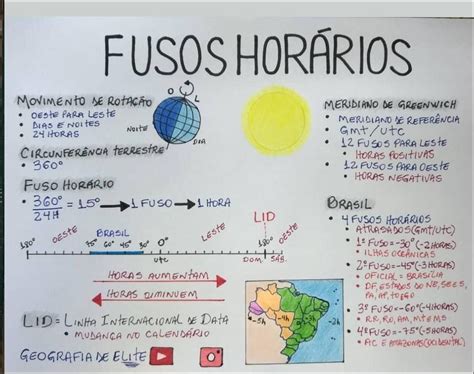 FUSOS HORÁRIOS
MOVIMENTO DE ROTAÇÃO
• OESTE PARA LESTE
• DIAS E NOITES
• 24 HORAS
O
L
NOITE
DIA
CIRCUNFERÊNCIA TERRESTRE
• 360°
FUSO HORÁRIO
• 360° = 15° → 1 FUSO → 1 HORA
24H
MERIDIANO DE GREENWICH
• MERIDIANO DE REFERÊNCIA
• GMT/UTC
• 12 FUSOS PARA LESTE
• HORAS POSITIVAS
• 12 FUSOS PARA OESTE
• HORAS NEGATIVAS
BRASIL
• 4 FUSOS HORÁRIOS
• ATRASADOS (GMT/UTC)
• 1º FUSO = -30° (-2 HORAS)
• ILHAS OCEÂNICAS
• 2º FUSO = -45° (-3 HORAS)
• OFICIAL = BRASÍLIA
• DF, ESTADOS DO NE, SE E S,
PA, AP, TO E GO
• 3º FUSO = -60° (-4 HORAS)
• RR, RO, AM, MT E MS
• 4º FUSO = -75° (-5 HORAS)
• AC E AMAZONAS (OCIDENTAL)
LID
180° OESTE BRASIL LESTE 180° OESTE
75° 60° 45° 30° 0°
UTC
DOM. SÁB.
HORAS AUMENTAM
HORAS DIMINUEM
LID = LINHA INTERNACIONAL DE DATA
• MUDANÇA NO CALENDÁRIO
GEOGRAFIA DE ELITE
-5h -4h -3h -2h